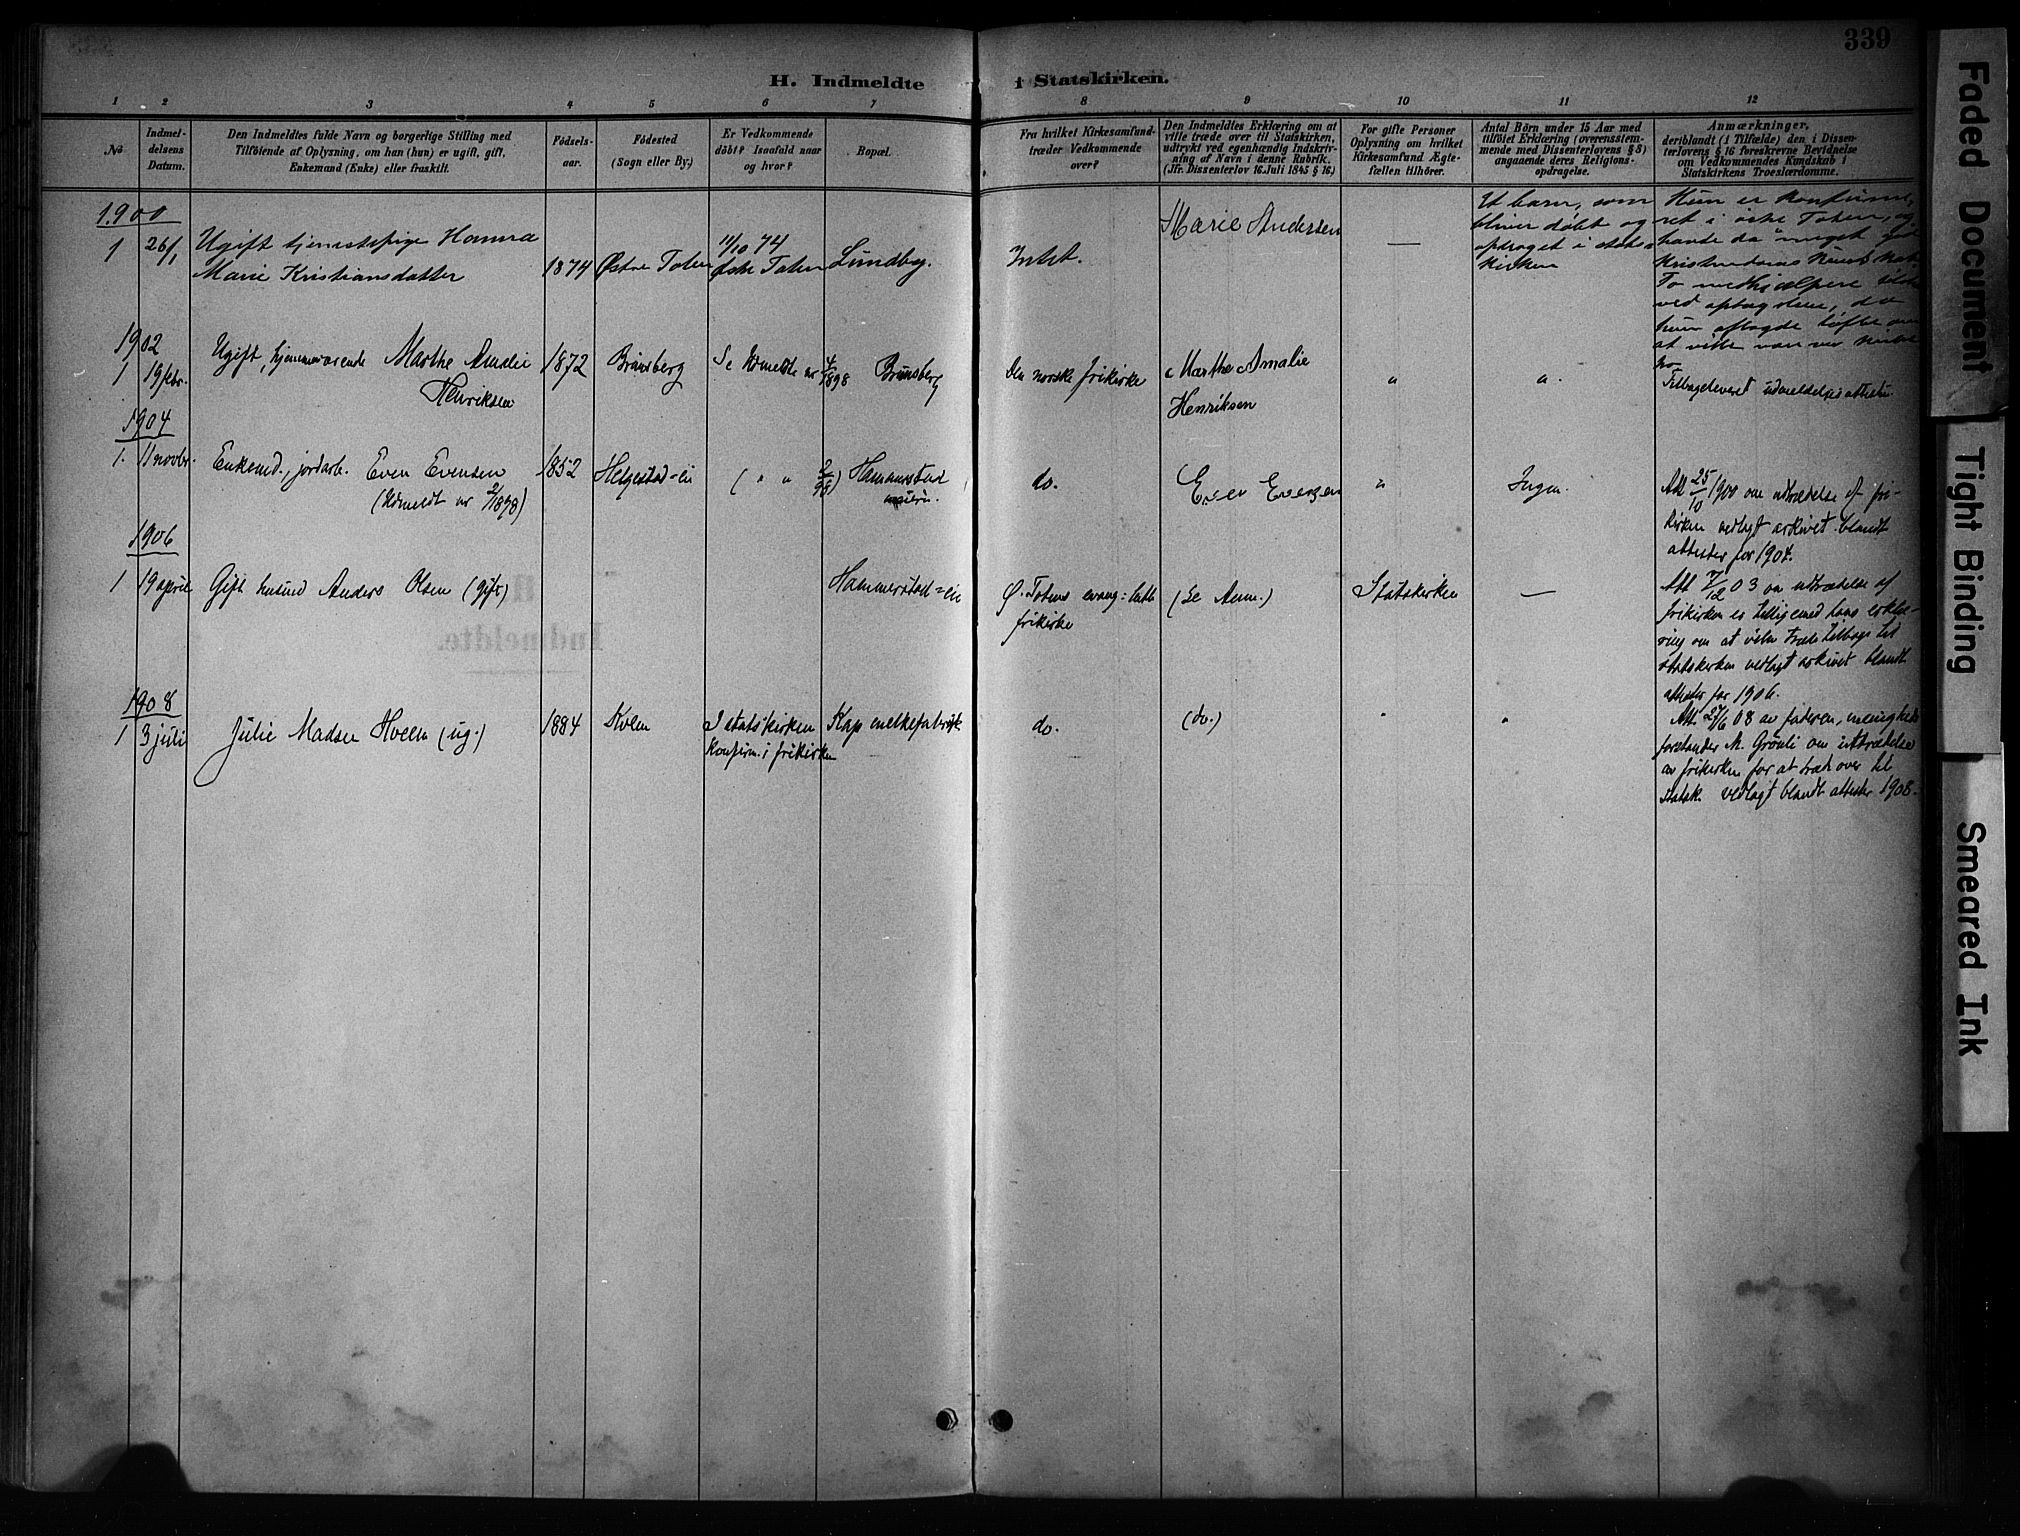 339
H. Indmeldte i Statskirken.
1 2 3 4 5 6 7 8 9 10 11 12
No
Indmel-
delsens
Datum.
Den Indmeldtes fulde Navn og borgerlige Stilling med
Tilföiende af Oplysning, om han (hun) er ugift, gift,
Enkemand (Enke) eller fraskilt.
Födsels-
aar.
Födested
(Sogn eller By.)
Er Vedkommende
döbt? Isaafald naar
og hvor?
Bopæl.
Fra hvilket Kirkesamfund
træder Vedkommende
over?
Den Indmeldtes Erklæring om at
ville træde over til Statskirken,
udtrykt ved egenhændig Indskriv-
ning af Navn i denne Rubrik.
(Jfr. Dissenterlov 16. Juli 1845 § 16.)
For gifte Personer
Oplysning om hvilket
Kirkesamfund Ægte-
fællen tilhörer.
Antal Börn under 15 Aar med
tilföiet Erklæring (overensstem-
mende med Dissenterlovens § 8)
angaaende deres Religions-
opdragelse.
Anmærkninger,
deriblandt (i Tilfælde) den i Dissen-
terlovens § 16 foreskrevne Bevidnelse
om Vedkommendes Kundskab i
Statskirkens Troeslærdomme.
1900
1 26/1 Ugift tjenestepige Hanna
Marie Kristiansdatter
1874
Østre Toten
11/10 74
Østre Toten
Lundby.
Intet.
Marie Andersen
—
Et barn, som
bliver døbt og
opdraget i stats
kirken
Hun er konfirme-
ret i østre Toten, og
havde da meget god
kristendoms kundskab
To medhjælpere
ved optagelsen, da
hun aflagde løfte om
at ville
1902
1 19 febr.
Ugift, hjemmeværende Marthe Amalie
Henriksen
1872
Brunsberg
Se Udmeldte nr 4/1898
Brunsberg
Den norske frikirke
Marthe Amalie
Henriksen
"
"
Tilbageleveret udmeldelsesattesten
1904
1. 11 novbr.
Enkemd., jordarb. Even Evensen
(Udmeldt nr 2/1898)
1852
Helgestad-ei
( " " 2/98)
Hammerstad
do.
Even Evensen
"
Ingen.
Att 25/10 1900 om udtrædelse af fri-
kirken vedlagt arkivet blandt
attester for 1904.
1906
1 19 april
Gift husmd Anders Olsen (gift)
Hammerstad=ei
Ø. Totens evang: luth
frikirke
(Se Anm.)
Statskirken
—
Att 7/12 03 om udtrædelse af
frikirken er tilligemed hans erklæ-
ring om at ville træde tilbage til
statskirken vedlagt arkivet blandt
attester for 1906.
1908
1 3 juli
Julie Madsen Hveem (ug.)
1884
Kolbu
I statskirken
Konfirm. i frikirken
Kap melkefabrik
do.
(do.)
"
"
Att. 27/6 08 av faderen, menigheds
forstander M. Grönli om utrædelse
av frikirken for at træde over til
Statsk. vedlagt blandt attester 1908.
Indmeldte.
Faded Document
Tight Binding
Smeared Ink